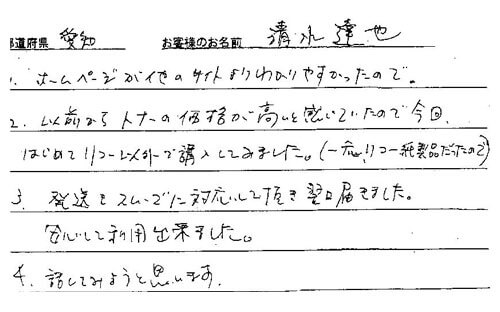 都道府県 愛知 お客様のお名前 清水達也
1. ホームページが他のサイトよりわかりやすかったので。
2. 以前からトナーの価格が高いと感じていたので今回、
はじめてリコー以外で購入してみました。(一応リコー純製品だったので)
3. 発送もスムーズに対応して頂き翌日届きました。
安心して利用出来ました。
4. 話してみようと思います。